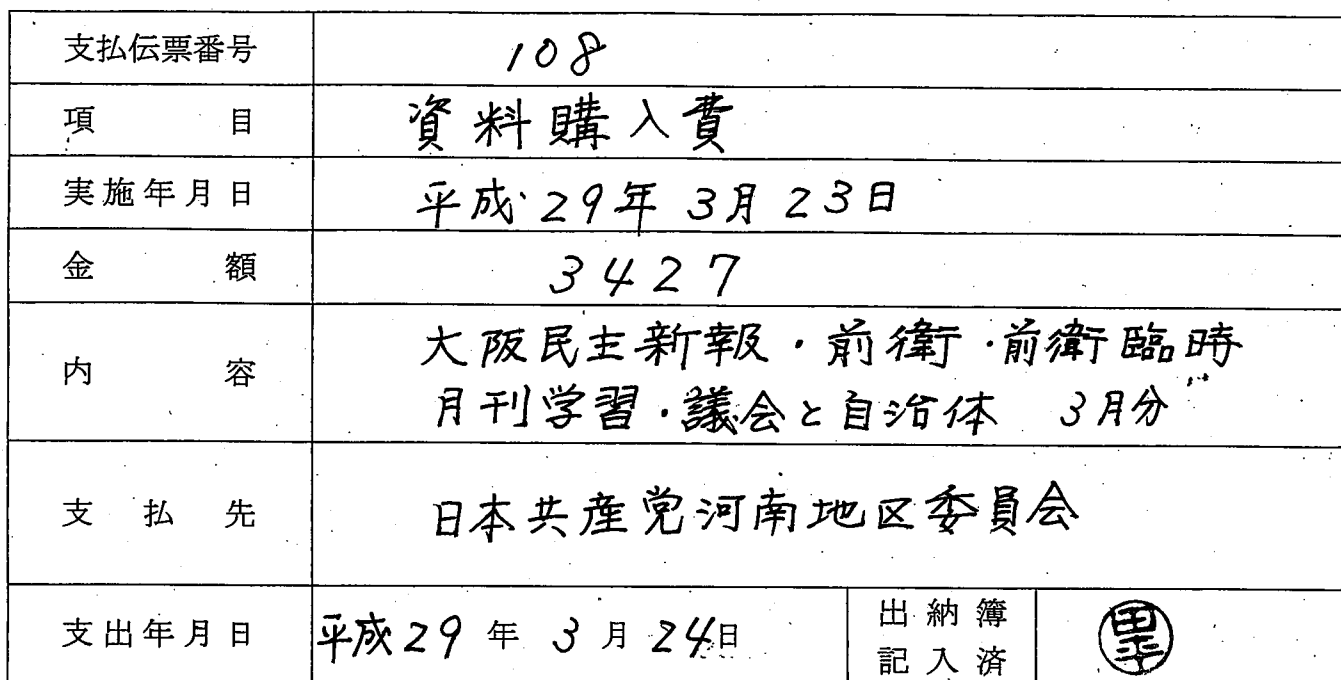 支払伝票番号 108
項目 資料購入費
実施年月日 平成29年3月23日
金額 3427
内容 大阪民主新報・前衛・前衛臨時
月刊学習・議会と自治体 3月分
支払先 日本共産党河南地区委員会
支出年月日 平成29年3月24日 出納簿
記入済